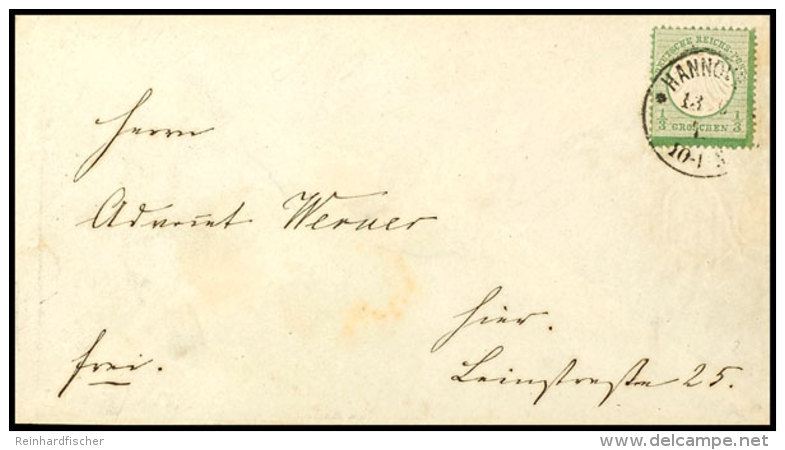 DEUTSCHE REICHS-POST
HANNOV
13
1/3 GROSCHEN 1/3
10-1
Herrn
Advocat Werner
hier.
frei.
Leinstraße 25.
Reinhardfischer
www.delcampe.net